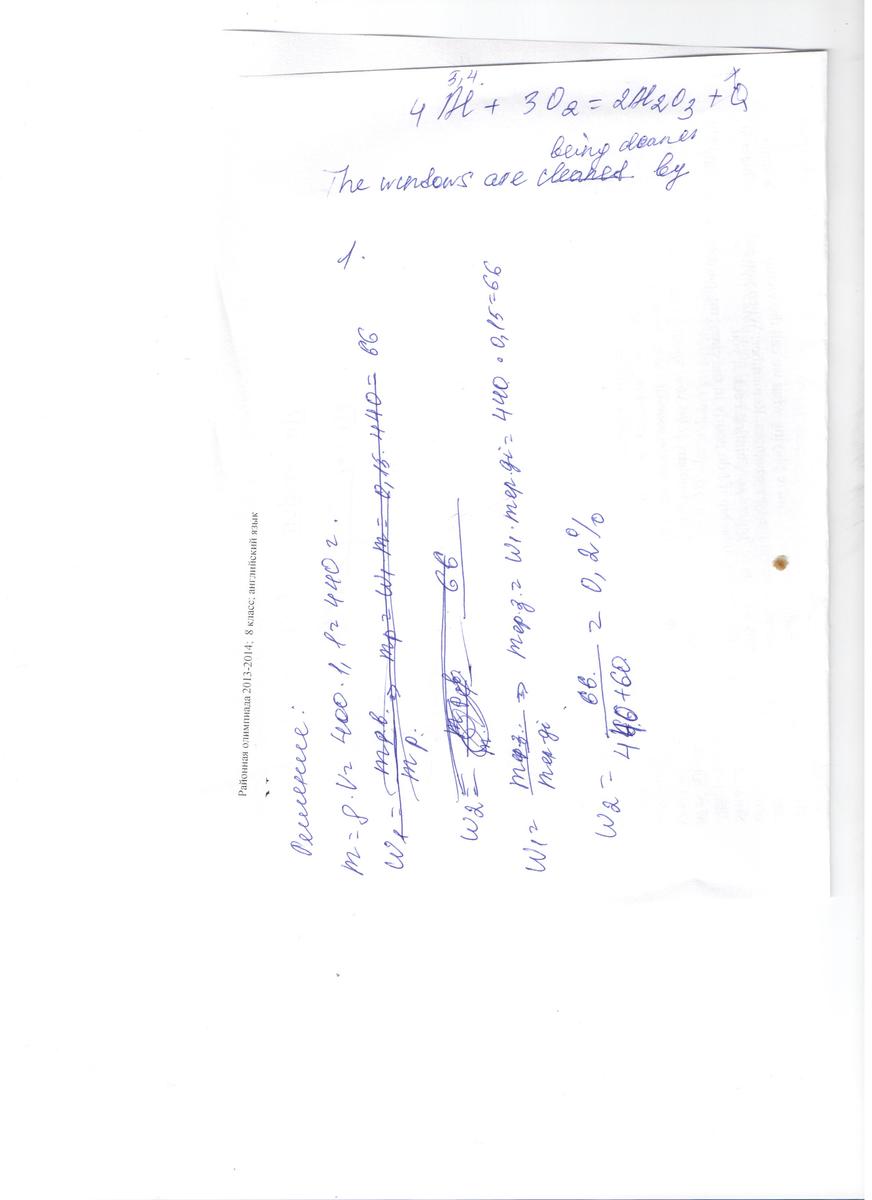 5,4. x
4 Al + 3O₂ = 2Al₂O₃ + Q
being
The windows are cleaned by
Районная олимпиада 2013-2014; 8 класс; английский язык
1.
Решение:
m = ρ·V = 400·1,1 = 440 г.
W₁ = mр.в. / mр. ⇒ mр = W₁ m = 0,15·440 = 66
W₂ = 66
W₁ = mерз. / mер-ді ⇒ mерз. = W₁·mер-ді = 440·0,15=66
W₂ = 66 / 440+60 = 0,2%